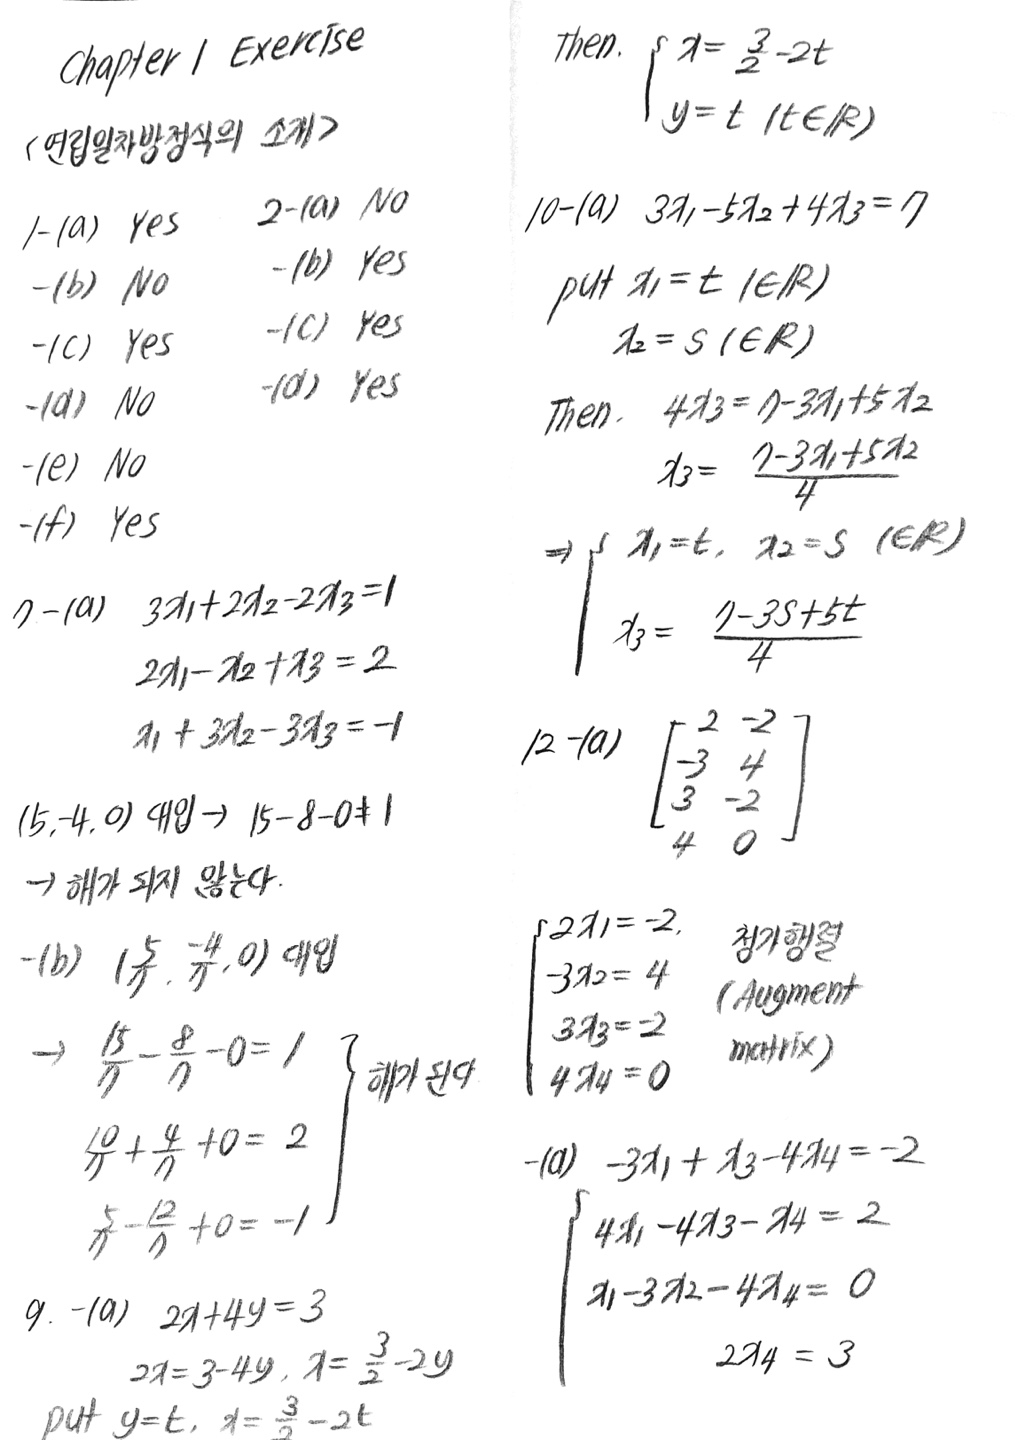 Chapter 1 Exercise
<연립일차방정식의 소개>
1-(a) Yes
-(b) No
-(c) Yes
-(d) No
-(e) No
-(f) Yes
2-(a) No
-(b) Yes
-(c) Yes
-(d) Yes
7-(a) 3x₁+2x₂-2x₃=1
2x₁-x₂+x₃=2
x₁+3x₂-3x₃=-1
(5,-4,0) 대입→ 15-8-0≠1
→ 해가 되지 않는다.
-(b) (5/7, -4/7, 0) 대입
→ 15/7 - 8/7 -0=1
10/7 + 4/7 +0= 2
5/7 - 12/7 +0=-1
해가 된다
9. -(a) 2x+4y=3
2x=3-4y, x= 3/2 -2y
put y=t, x= 3/2 -2t
Then. { x= 3/2 -2t
y=t (t∈ℝ)
10-(a) 3x₁-5x₂+4x₃=7
put x₁=t (∈ℝ)
x₂=s (∈ℝ)
Then. 4x₃=7-3x₁+5x₂
x₃= (7-3x₁+5x₂)/4
⇒ { x₁=t, x₂=s (∈ℝ)
x₃= (7-3s+5t)/4
12-(a) [ 2 -2
-3 4
3 -2
4 0 ]
{ 2x₁=-2,
-3x₂=4
3x₃=-2
4x₄=0
첨가행렬
(Augment
matrix)
-(d) -3x₁+x₃-4x₄=-2
{ 4x₁-4x₃-x₄=2
x₁-3x₂-4x₄=0
2x₄=3